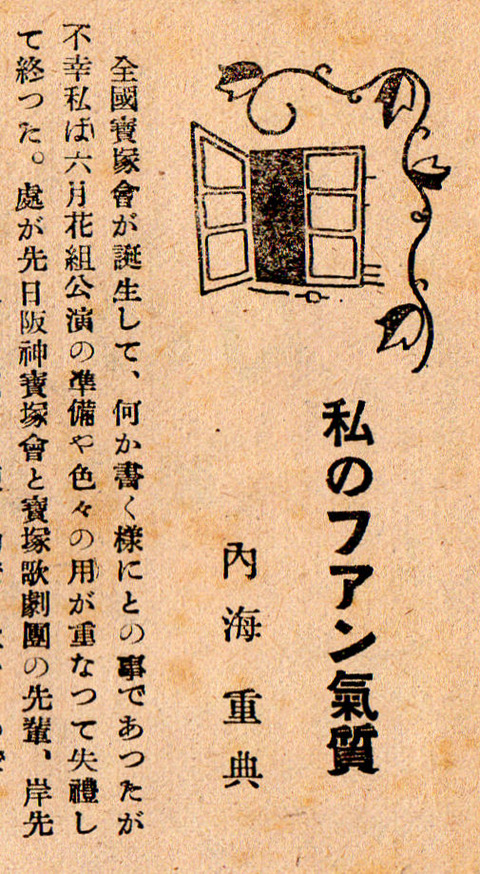 私のフアン氣質
內海重典
全國寶塚會が誕生して、何か書く樣にとの事であつたが
不幸私は六月花組公演の準備や色々の用が重なつて失禮し
て終つた。處が先日阪神寶塚會と寶塚歌劇團の先輩、岸先